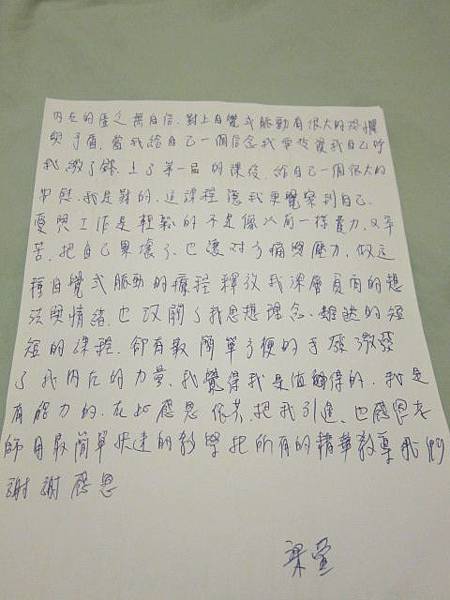 內在的匱乏無自信.對上自覺式脈動有很大的恐懼
與矛盾,當我給自己一個信念我要愛我自己時
我繳了錢.上了第一屆的課後,給自己一個很大的
肯定.我是對的.這課程讓我更覺察到自己.
愛與工作是輕鬆的不是像以前一樣費力.又辛
苦.把自己累壞了.也讓對方痛與壓力.做這
種自覺式脈動的療程 釋放我深層負面的想
法與情緒.也改開了我思想理念.雖然的短
短的課程.卻有最簡單方便的手發激發
了我內在的力量.我覺得我是值得的.我是
有能力的.在此感恩 把我引進.也感恩老
師用最簡單快速的教學把所有的精華教導我們
謝謝感恩
梁